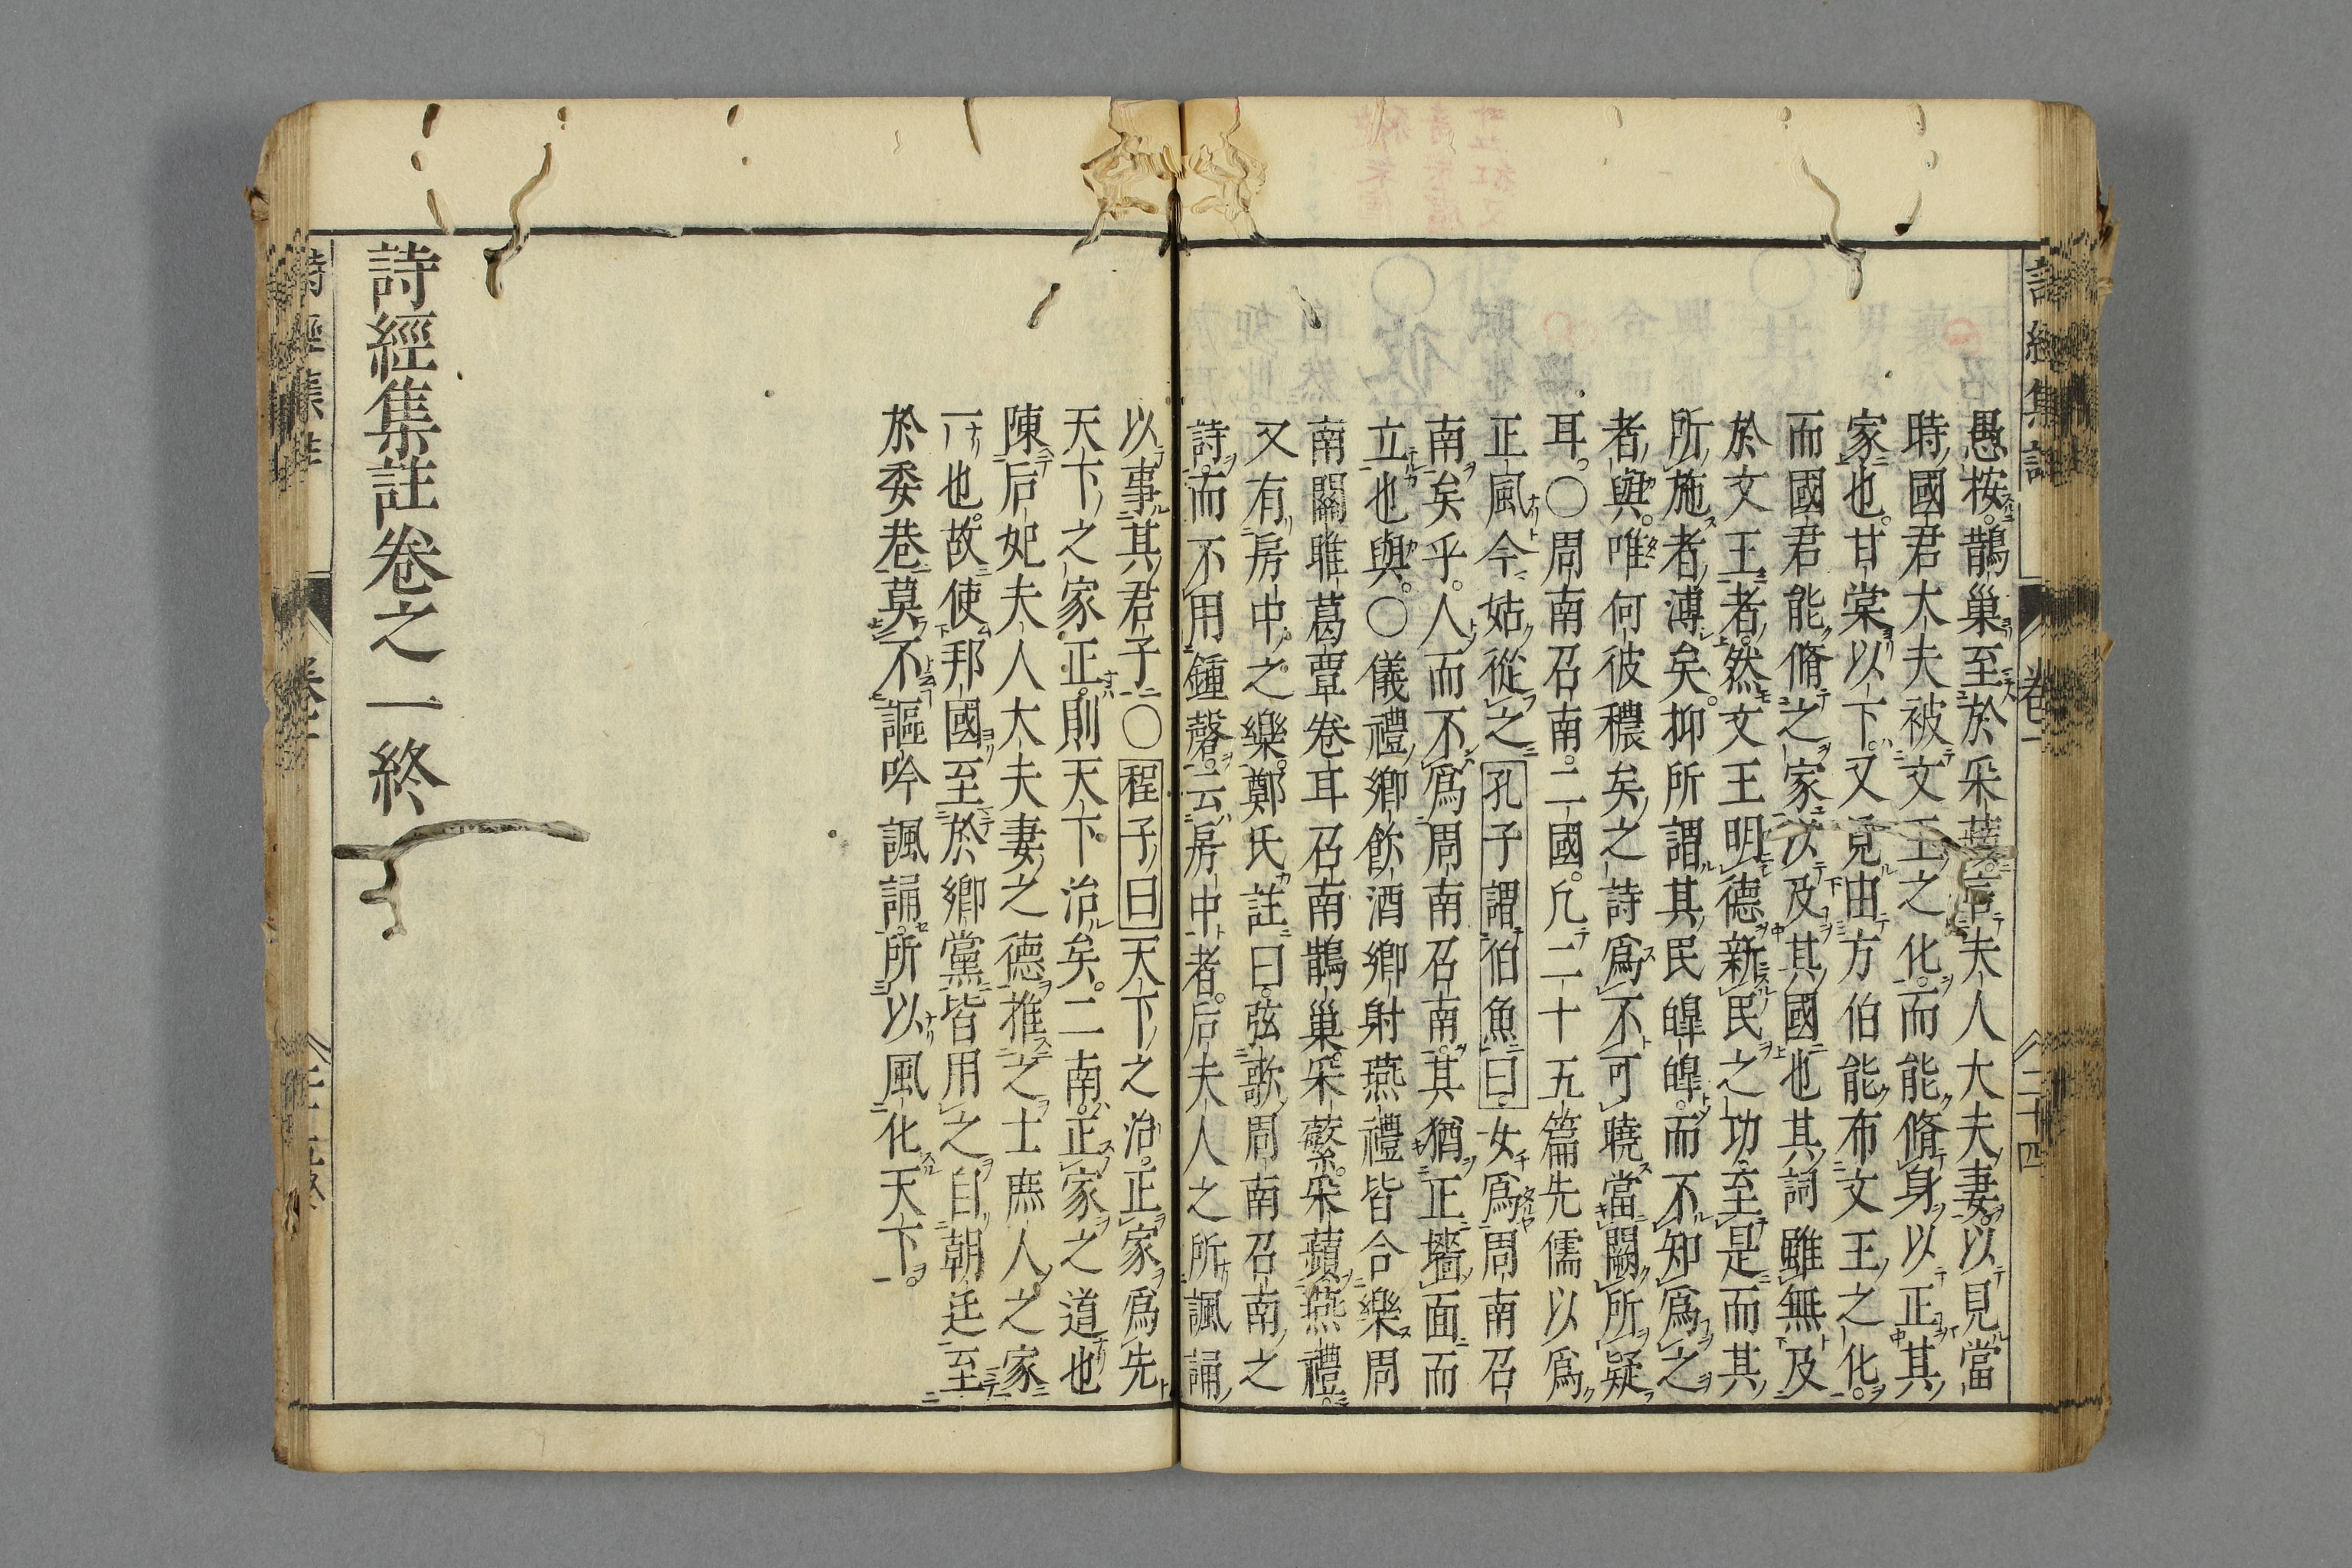 詩經集註
卷一
二十四
愚按。鵲巢至於采蘋。言夫人大夫妻。以見當
時國君大夫被文王之化。而能脩身以正其
家也。甘棠以下。又見由方伯能布文王之化。
而國君能脩之家以及其國也其詞雖無及
於文王者。然文王明德新民之功至是而其
所施者溥矣。抑所謂其民皥皥。而不知爲之
者與。唯何彼穠矣之詩爲不可曉當闕所疑
耳。○周南召南。二國。凡二十五篇先儒以爲
正風今姑從之孔子謂伯魚曰。女爲周南召
南矣乎。人而不爲周南召南。其猶正墻面而
立也與。○儀禮鄉飲酒鄉射燕禮皆合樂周
南關雎葛覃卷耳召南鵲巢。采蘩。采蘋。燕禮。
又有房中之樂。鄭氏註曰。弦歌周南召南之
詩。而不用鍾磬。云房中者。后夫人之所諷誦
以事其君子○程子曰天下之治。正家爲先
天下之家正。則天下治矣。二南。正家之道也
陳后妃夫人大夫妻之德推之士庶人之家
一也。故使邦國至於鄉黨皆用之自朝廷至
於委巷莫不謳吟諷誦。所以風化天下。
詩經集註卷之一終